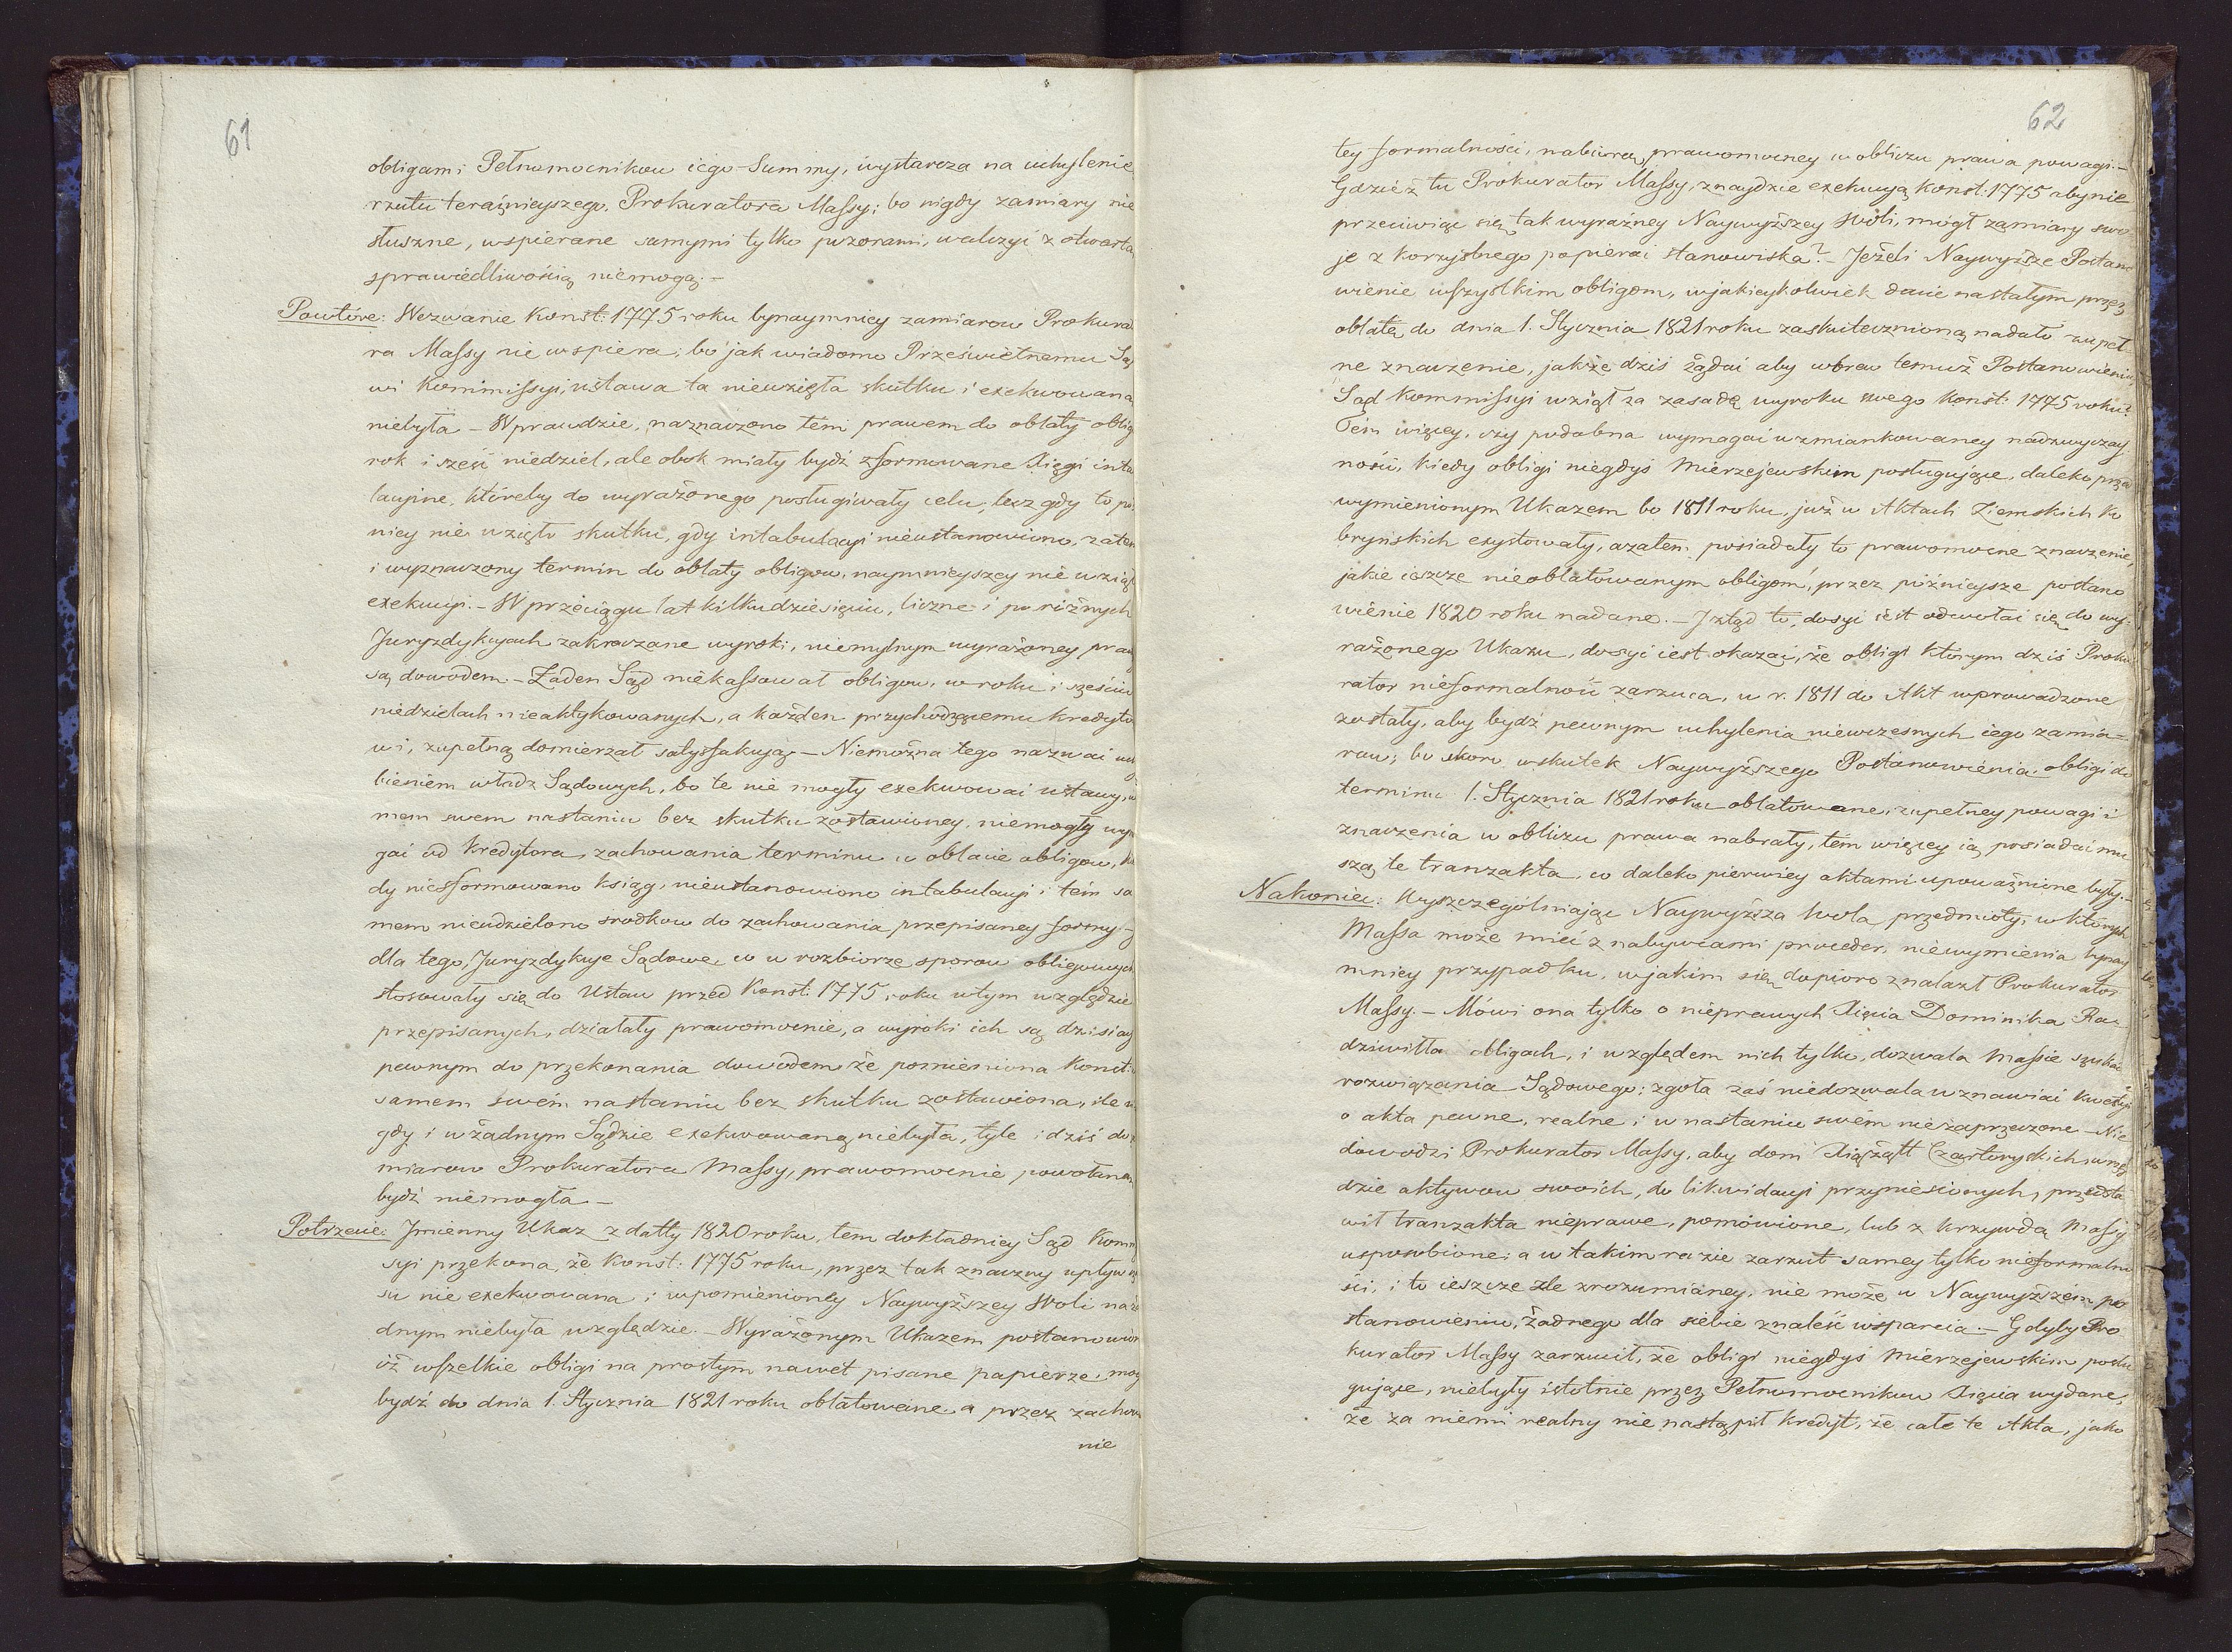 61
obligami Pełnomocnikow iego Summy, wystarcza na uchylenie
rzutu teraźnieyszego Prokuratora Massy; bo nigdy zamiary nie
słuszne, wspierane samymi tylko pozorami, walczyć z otwartą
sprawiedliwością niemogą. –
Powtóre: Wezwanie Konst: 1775 roku bynaymniey zamiarow Prokura
ra Massy nie wspiera; bo jak wiadomo Prześwietnemu Są
wi Kommissyi, ustawa ta niewzięła skutku i exekwowaną
niebyła – Wprawdzie, naznaczono tém prawem do oblaty oblig
rok i sześć niedziel, ale obok miały bydź zformowane Xięgi inta
lacyine, któreby do wyrażonego posługiwały celu; lecz gdy to po
niey nie wzięło skutku, gdy intabulacyi nieustanowiono, zatem
i wyznaczony termin do oblaty obligow, naymnieyszey nie wziął
exekucyi. – W przeciągu lat kilkudziesięciu, liczne i po różnych
Juryzdykcyach zakroczone wyroki, niemylnym wyrażoney praw
są dowodem. – Żaden Sąd niekassował obligow, w roku i sześciu
niedzielach nieaktykowanych, a każden przychodzącemu kredyto
wi, zupełną domierzał satysfakcyją – Niemożna tego nazwać uch
bieniem władz Sądowych, bo te nie mogły exekwować ustawy, w
mem swem nastaniu bez skutku zostawioney, niemogły wym
gać od Kredytora, zachowania terminu w oblacie obligow, kie
dy niesformowano ksiąg, nieustanowiono intabulacyi i tém sa
mem nieudzielono srodkow do zachowania przepisaney formy –
dla tego, Juryzdykcye Sądowe, co w rozbiorze sporow obligowych
stosowały się do Ustaw przed Konst: 1775 roku w tym względzie
przepisanych, działały prawomocnie, a wyroki ich są dzisiay
pewnym do przekonania dowodem że pomieniona Konst:
samem swém nastaniu bez skutku zostawiona, ile ni
gdy i w żadnym Sądzie exekwowaną niebyła, tyle i dziś do z
miarow Prokuratora Massy, prawomocnie powołaną
bydź niemogła –
Potrzecie: Jmienny Ukaz z datty 1820 roku, tem dokładniey Sąd Komm
syi przekona, że Konst: 1775 roku, przez tak znaczny upływ cza
su nie exekwowana i wpomienioney Naywyższey Woli na ża
dnym niebyła względzie. – Wyrażonym Ukazem postanowion
iż wszelkie obligi na prostym nawet pisane papierze, mog
bydź do dnia 1. Stycznia 1821 roku oblatowane a przez zachowa
nie
62
tey formalności, nabiorą prawomocney w obliczu prawa powagi. –
Gdzież tu Prokurator Massy, znaydzie exekucyą Konst: 1775 aby nie
przeciwiąc się tak wyraźney Naywyższey Woli, mógł zamiary swo
je z korzystnego popierać stanowiska? – Jeżeli Naywyższe Postano
wienie wszystkim obligom, w jakieykolwiek dacie nastałym przez
oblatę do dnia 1. Stycznia 1821 roku zaskutecznioną nadało zupeł
ne znaczenie, jakże dziś żądać aby wbrew temuż Postanowieniu
Sąd Kommissyi wziął za zasadę wyroku swego Konst: 1775 roku?
Tém więcey, czy podobna wymagać wzmiankowaney nadzwyczay
ności, kiedy obligi niegdyś Mierzejewskim posługujące, daleko przed
wymienionym Ukazem bo 1811 roku, już w Aktach Ziemskich Ko
bryńskich exystowały, a zatem posiadały to prawomocne znaczenie,
jakie ieszcze nieoblatowanym obligom, przez późnieysze postano
wienie 1820 roku nadane. – Jztąd to, dosyć iest odwołać się do wy
rażonego Ukazu, dosyć iest okazać, że obligi którym dziś Proku
rator nieformalność zarzuca, w r. 1811 do Akt wprowadzone
zostały, aby bydź pewnym uchylenia niewczesnych iego zamia=
row; bo skoro wskutek Naywyższego Postanowienia, obligi do
terminu 1. Stycznia 1821 roku oblatowane, zupełney powagi i
znaczenia w obliczu prawa nabrały, tém więcey ią posiadać mu
szą te tranzakta, co daleko pierwiey aktami upoważnione były. –
Nakoniec: Wyszczególniając Naywyższa Wola przedmioty, w których
Massa może mieć z nabywcami proceder, niewymienia bynay
mniey przypadku, w jakim się dopioro znalazł Prokurator
Massy. – Mówi ona tylko o nieprawych Xięcia Dominika Ra=
dziwiłła obligach, i względem nich tylko, dozwala Massie szukać
rozwiązania Sądowego; zgoła zaś niedozwala wznawiać kwestyi
o akta pewne, realne i w nastaniu swém niezaprzeczone – Nie
dowodzi Prokurator Massy, aby dom Xiążątt Czartoryskich w rzę
dzie aktywow swoich, do likwidacyi przyniesionych, przedsta
wił tranzakta nieprawe, pomówione, lub z krzywdą Massy
usposobione; a w takim razie zarzut samey tylko nieformalno
ści, i to ieszcze źle zrozumiáney, nie może w Naywyższém po
stanowieniu, żadnego dla siebie znaleść wsparcia. – Gdyby Pro
kurator Massy zarzucił, że obligi niegdyś Mierzejewskim posłu
gujące, niebyły istotnie przez Pełnomocnikow Xięcia wydane,
że za niemi realny nie nastąpił kredyt, że całe te Akta, jako